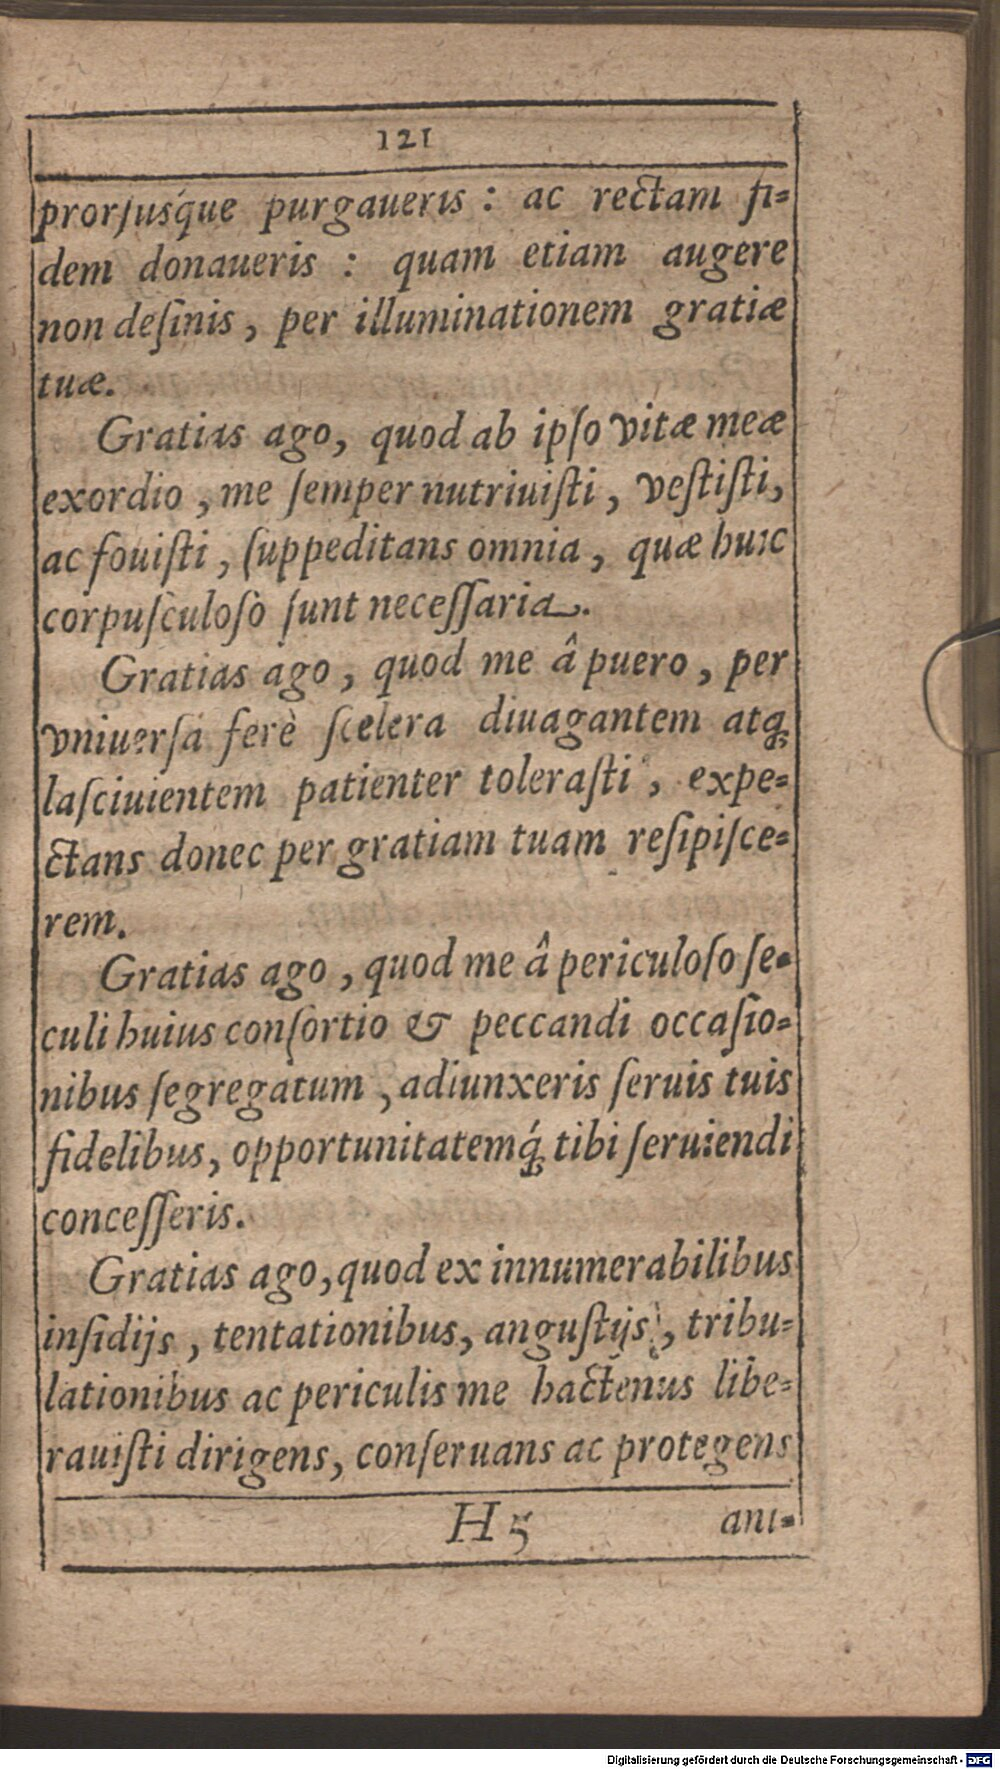 121
prorſuśque purgaueris : ac rectam fi-
dem donaueris : quam etiam augere
non deſinis, per illuminationem gratiæ
tuæ.
Gratias ago, quod ab ipſo vitæ meæ
exordio, me ſemper nutriuiſti, veſtiſti,
ac fouiſti, ſuppeditans omnia, quæ huic
corpuſculoſo ſunt neceſſaria.
Gratias ago, quod me â puero, per
vniuerſa ferè ſcelera diuagantem atq;
laſciuientem patienter toleraſti, expe-
ctans donec per gratiam tuam reſipiſce-
rem.
Gratias ago, quod me â periculoſo ſe-
culi huius conſortio & peccandi occaſio-
nibus ſegregatum, adiunxeris ſeruis tuis
fidelibus, opportunitatemq́; tibi ſeruiendi
conceſſeris.
Gratias ago, quod ex innumerabilibus
inſidijs, tentationibus, anguſtijs, tribu-
lationibus ac periculis me hactenus libe-
rauiſti dirigens, conſeruans ac protegens
H 5 ani-
Digitalisierung gefördert durch die Deutsche Forschungsgemeinschaft - DFG